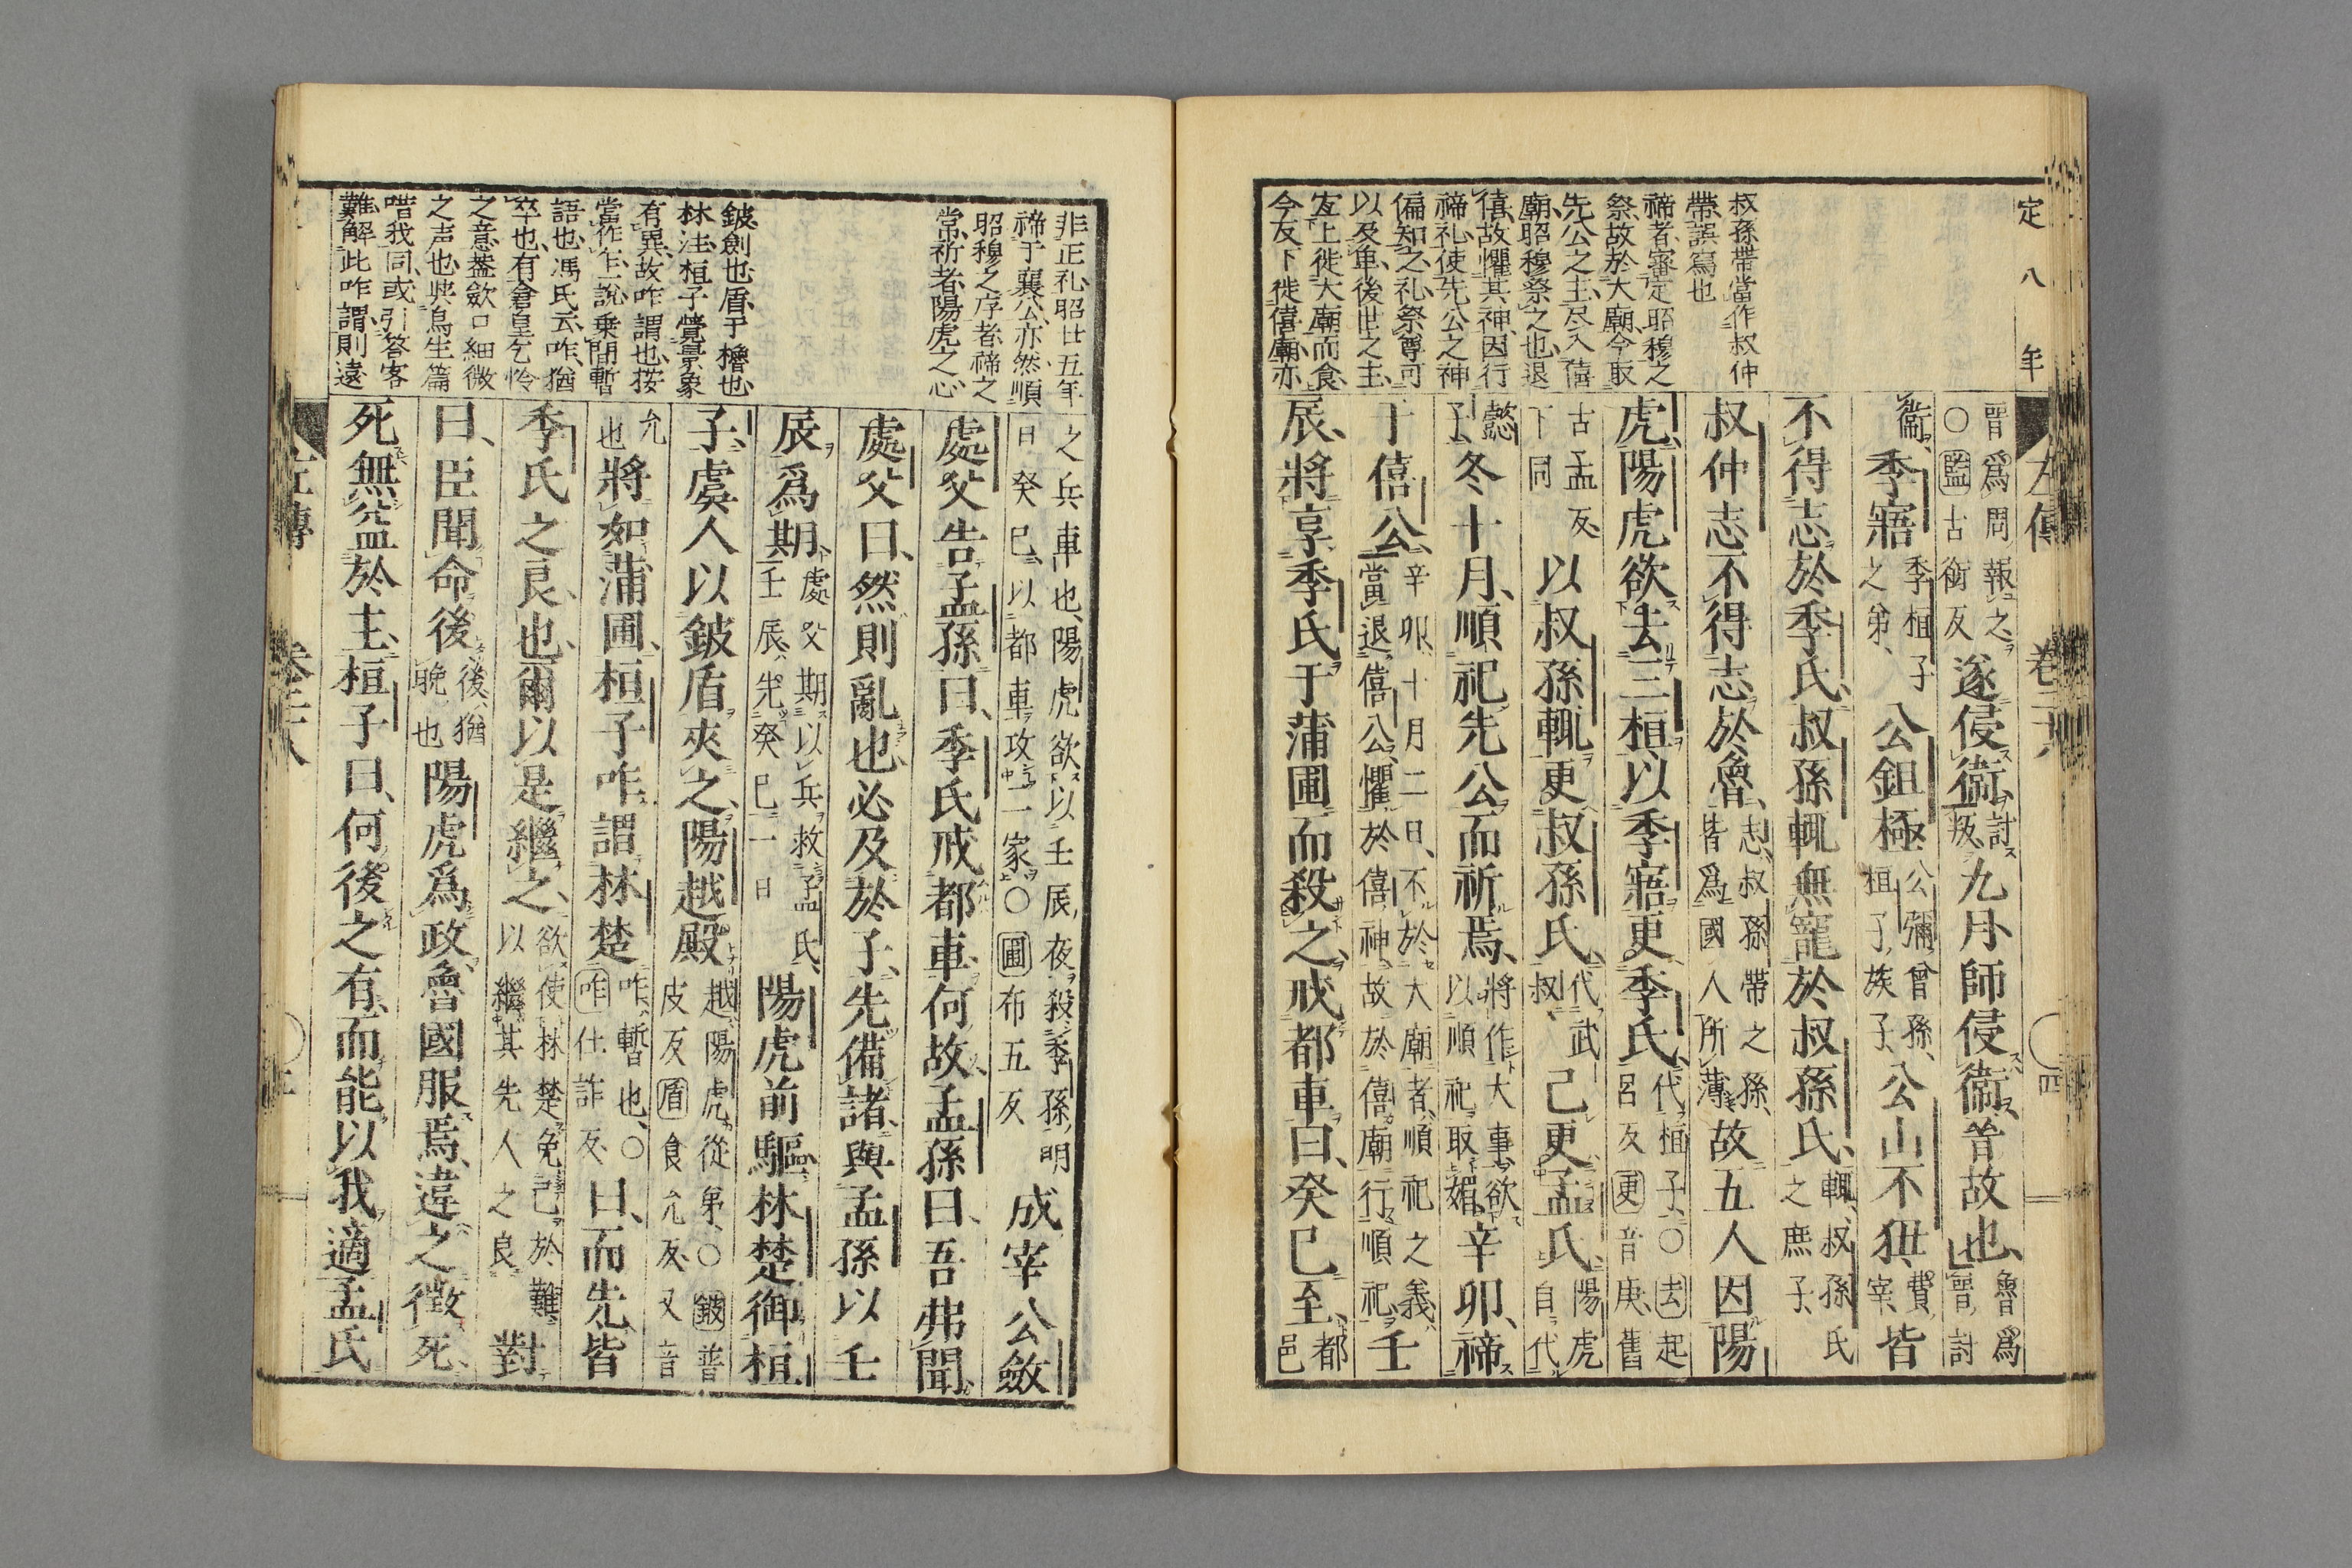 定八年
叔孫帶當作叔仲
帶誤寫也
禘者審定昭穆之
祭故於大廟今取
先公之主尽入僖
廟昭穆祭之也退
僖故懼其神因行
禘礼使先公之神
偏知之礼祭尊可
以及卑後世之主
宜上徙大廟而食
今反下徙僖廟亦
晉爲周報之
○監古銜反
遂侵衛討叛九月師侵衛晉故也魯爲晉討
衛季寤季桓子之弟公鉏極公彌曾孫桓子族子公山不狃費宰皆
不得志於季氏叔孫輒無寵於叔孫氏輒叔孫氏之庶子
叔仲志不得志於魯志叔孫帶之孫皆爲國人所薄故五人因陽
虎陽虎欲去三桓以季寤更季氏代桓子○去起呂反更音庚舊
古孟反下同以叔孫輒更叔孫氏代武叔己更孟氏陽虎自代
懿子冬十月順祀先公而祈焉將作大事欲以順祀取媚辛卯禘
于僖公辛卯十月二日不於大廟者順祀之義當退僖公懼於僖神故於僖廟行順祀壬
辰將享季氏于蒲圃而殺之戒都車曰癸巳至都邑
左傳 卷二十八 四
非正礼昭廿五年
禘于襄公亦然順
昭穆之序者禘之
常祈者陽虎之心
鈹劍也盾干櫓也
林注桓子覺景象
有異故咋謂也按
當作乍一說乗間暫
語也馮氏云咋猶
卒也有倉皇乞怜
之意蓋欲口細微
之声也典鳥生篇
唶我同或引答客
難解此咋謂則遠
之兵車也陽虎欲以壬辰夜殺季孫明日癸巳以都車攻二家○圃布五反成宰公斂
處父告孟孫曰季氏戒都車何故孟孫曰吾弗聞
處父曰然則亂也必及於子先備諸與孟孫以壬
辰爲期處父期以兵救孟氏壬辰先癸巳一日陽虎前驅林楚御桓
子虞人以鈹盾夾之陽越殿越陽虎從弟○鈹普皮反盾食允反又音
允也將如蒲圃桓子咋謂林楚咋暫也○咋仕詐反曰而先皆
季氏之良也爾以是繼之欲使林楚免己於難以繼其先人之良對
曰臣聞命後後猶晚也陽虎爲政魯國服焉違之徵死
死無益於主桓子曰何後之有而能以我適孟氏
左傳 卷二十八